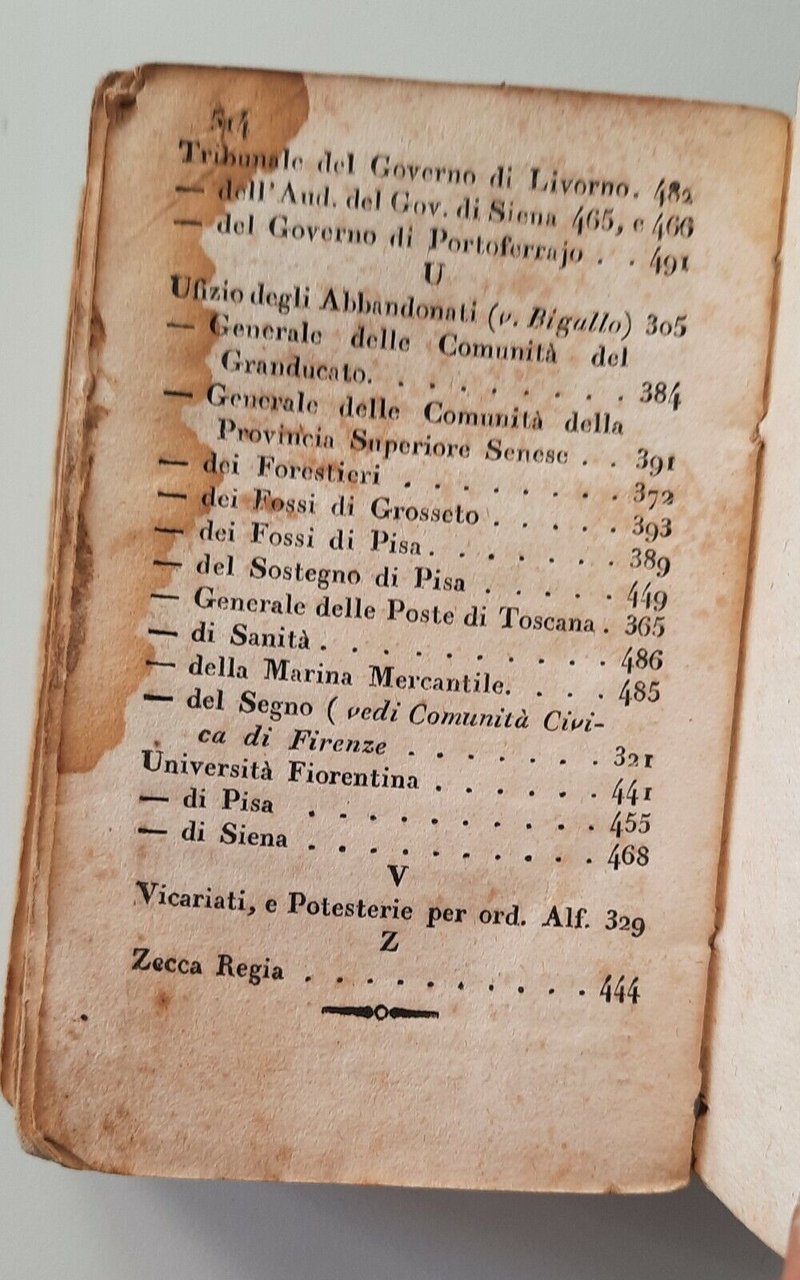 514
Tribunale del Governo di Livorno. 482
— dell'Aud. del Gov. di Siena 465, e 466
— del Governo di Portoferrajo . . 491
U
Ufizio degli Abbandonati (v. Bigallo) 305
— Generale delle Comunità del
Granducato. . . . . . . . . 384
— Generale delle Comunità della
Provincia Superiore Senese . . 391
— dei Forestieri . . . . . . . 372
— dei Fossi di Grosseto . . . . . 393
— dei Fossi di Pisa. . . . . . . 389
— del Sostegno di Pisa . . . . . 449
— Generale delle Poste di Toscana . 365
— di Sanità . . . . . . . . . . 486
— della Marina Mercantile. . . . 485
— del Segno ( vedi Comunità Civi-
ca di Firenze . . . . . . . 321
Università Fiorentina . . . . . . 441
— di Pisa . . . . . . . . . . 455
— di Siena . . . . . . . . . . 468
V
Vicariati, e Potesterie per ord. Alf. 329
Z
Zecca Regia . . . . . . . . . . 444